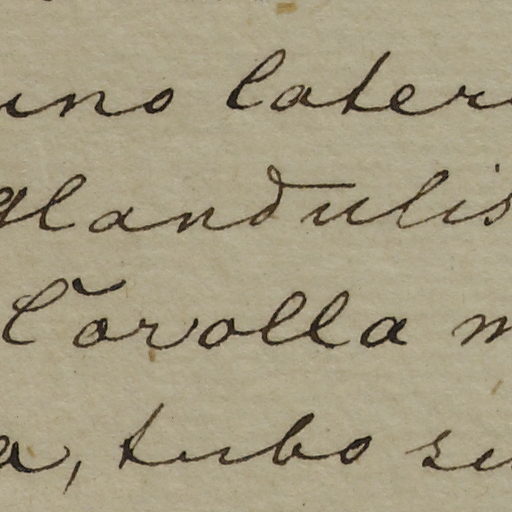 uno later
glandulis
Corolla m
a, tubo su